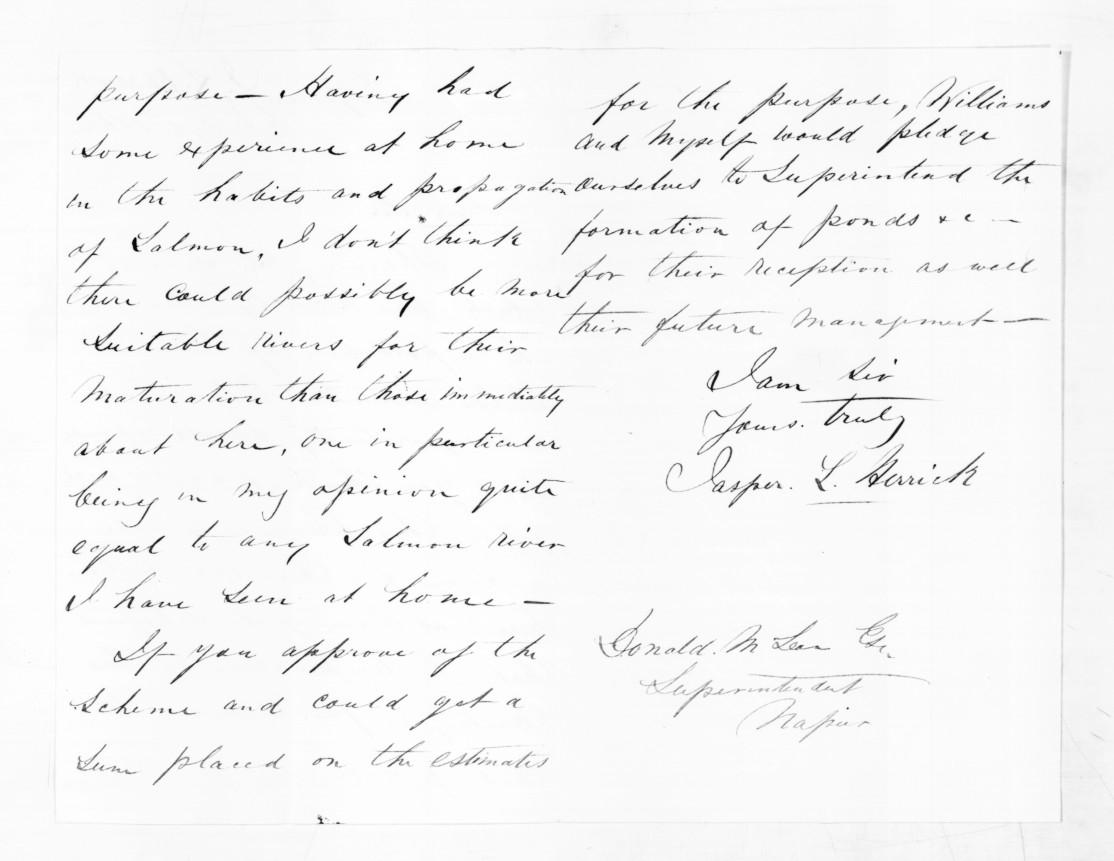 purpose — Having had
some experience at home
in the habits and propagation
of Salmon, I don't think
there could possibly be more
suitable rivers for their
maturation than those immediately
about here, one in particular
being in my opinion quite
equal to any Salmon river
I have seen at home —
If you approve of the
scheme and could get a
sum placed on the estimates
for the purpose, Williams
and myself would pledge
ourselves to Superintend the
formation of ponds &c —
for their reception as well
their future management —
I am Sir
Yours. truly
Jasper. L. Herrick
Donald. McLean Esq.
Superintendent
Napier